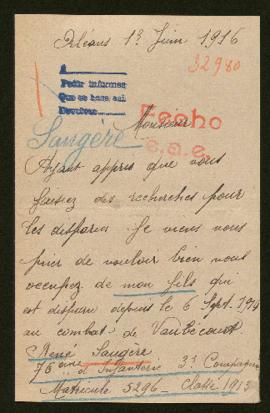 Orléans 1er Juin 1916
32980
A
Pedir informes
Que se haga asi
Devolver
Hecho
c.a.e.
Saugère
Monsieur
Ayant appris que vous
faisiez des recherches pour
les disparus je viens vous
prier de vouloir bien vous
occuper de mon fils qui
est disparu depuis le 6 Sept. 1914
au combat de Vaubécourt
René Saugère
76 ème d'Infanterie 3e Compagnie
Matricule 5296 classe 1913